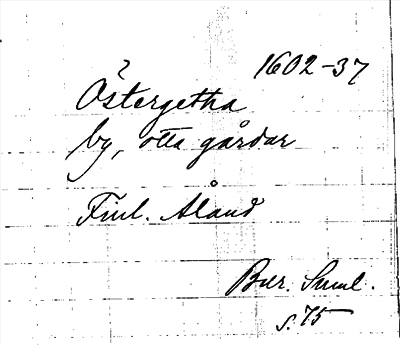 1602-37
Östergetha
by, otta gårdar
Finl. Åland
Bur. Suml.
s. 75